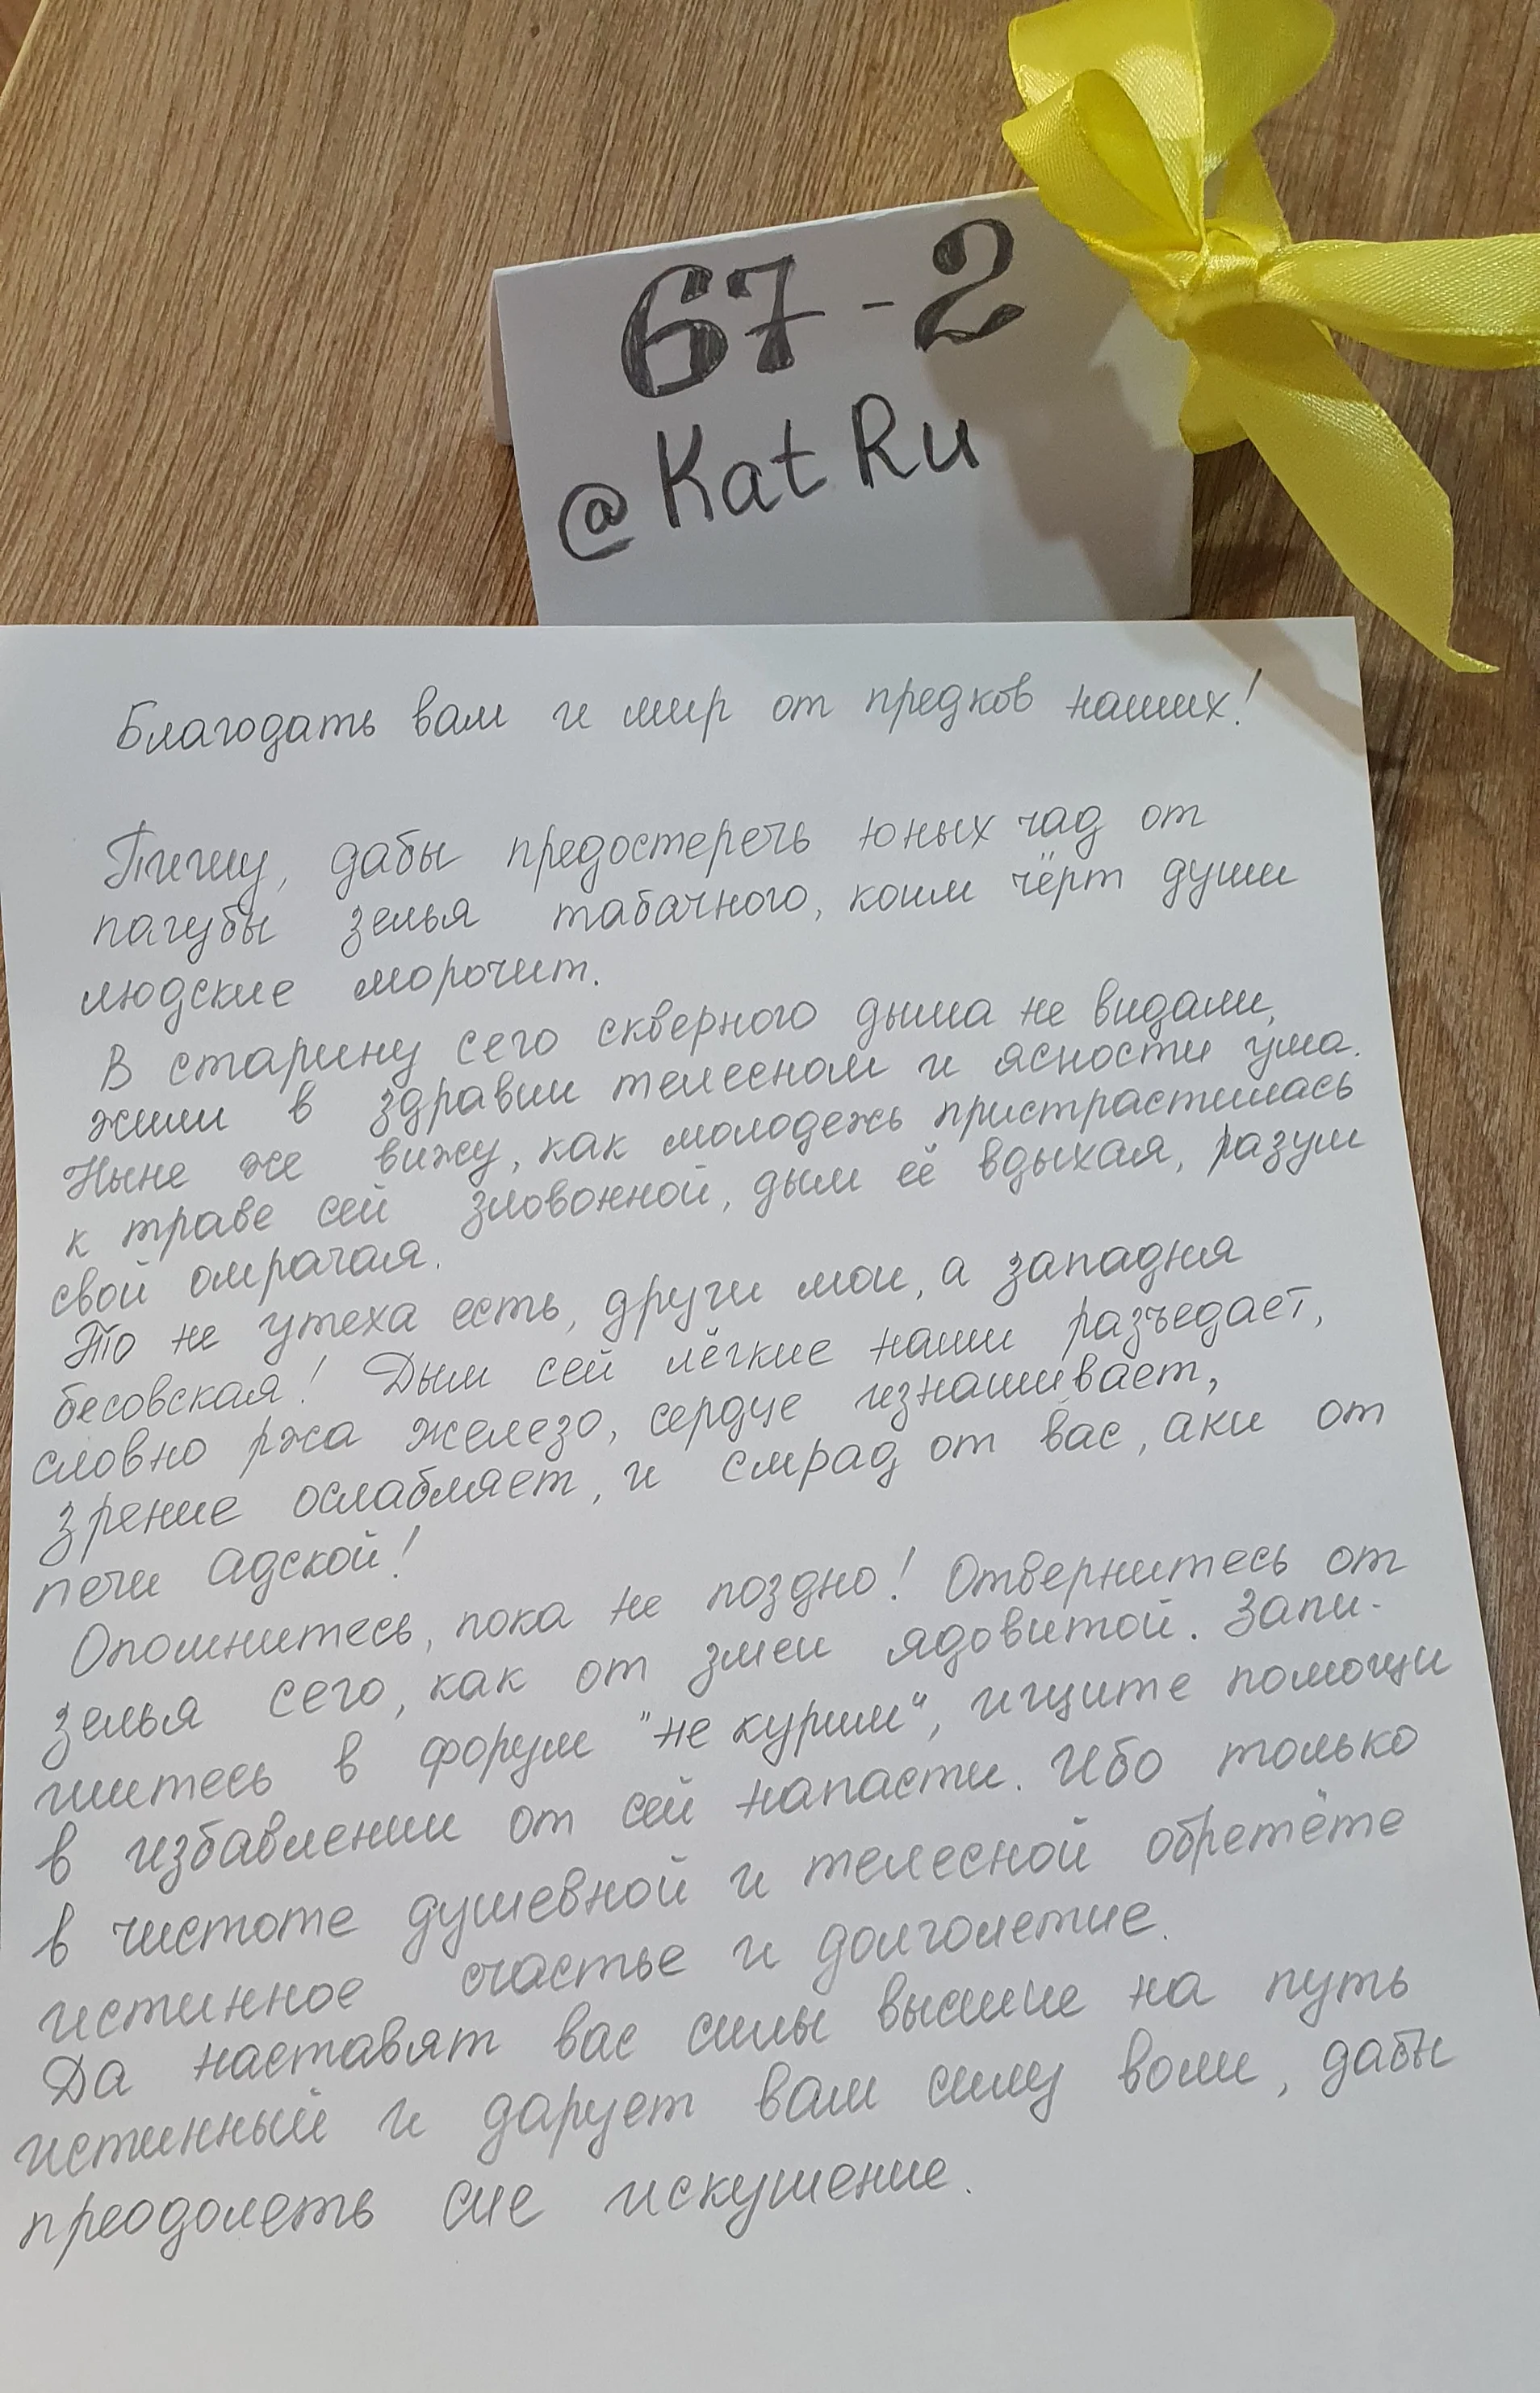 67-2
@KatRu
Благодать вам и мир от предков наших!
Пишу, дабы предостеречь юных чад от
пагубы зелья табачного, коим чёрт души
людские морочит.
В старину сего скверного дыма не видали,
жили в здравии телесном и ясности ума.
Ныне же вижу, как молодежь пристрастилась
к траве сей зловонной, дым её вдыхая, разум
свой омрачая.
То не утеха есть, други мои, а западня
бесовская! Дым сей лёгкие наши разъедает,
словно ржа железо, сердце изнашивает,
зрение ослабляет, и смрад от вас, аки от
печи адской!
Опомнитесь, пока не поздно! Отвернитесь от
зелья сего, как от змеи ядовитой. Запи-
шитесь в форум "не курим", ищите помощи
в избавлении от сей напасти. Ибо только
в чистоте душевной и телесной обретёте
истинное счастье и долголетие.
Да наставят вас силы высшие на путь
истинный и дарует вам силу воли, дабы
преодолеть сие искушение.